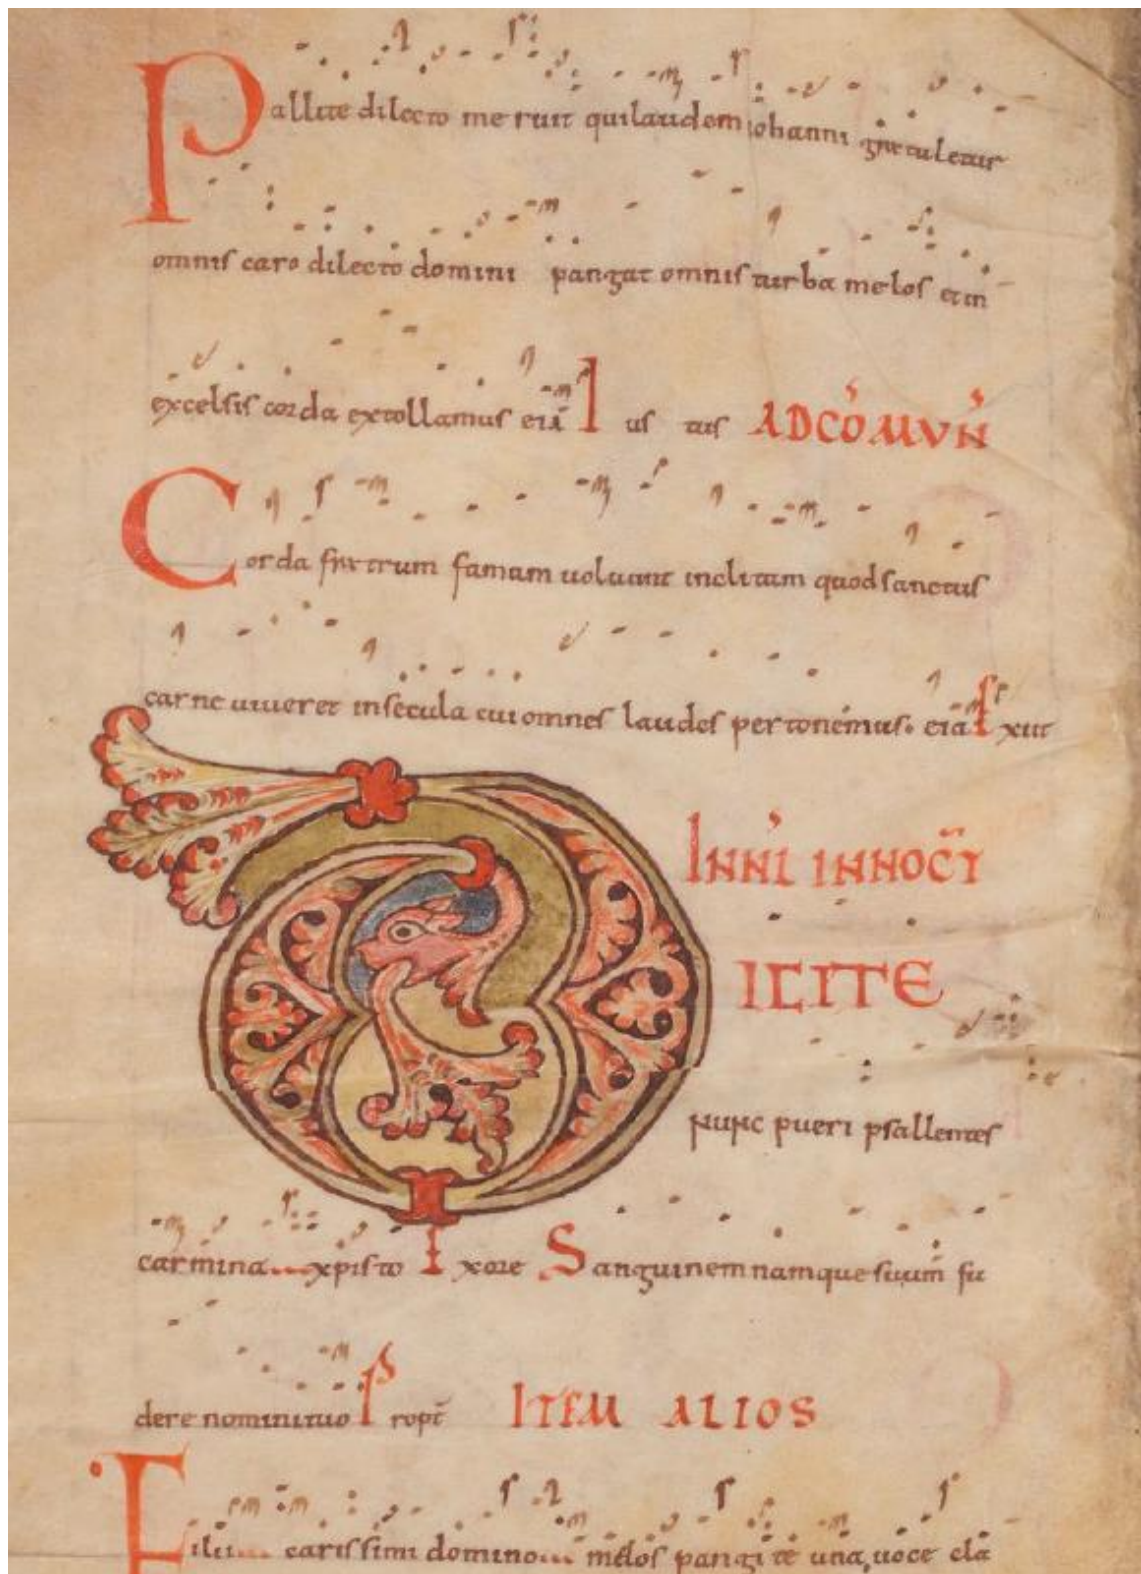 Psallite dilecto meruit qui laudem iohanni gratuletur
omnis caro dilecto domini pangat omnis turba melos et in
excelsis corda extollamus eiā Ius tus AD CŌMVN̄
Corda fratrum famam uoluunt inclitam quod sanctus
carne uiueret in secula cui omnes laudes personemus. eiā Exiit
INNI INNOC̄T
DICITE
nunc pueri psallentes
carmina xpisto Exore Sanguinem namque suum fu
dere nomini tuo Propt̄ ITEM ALIOS
Filium carissimi domino melos pangite una uoce cla